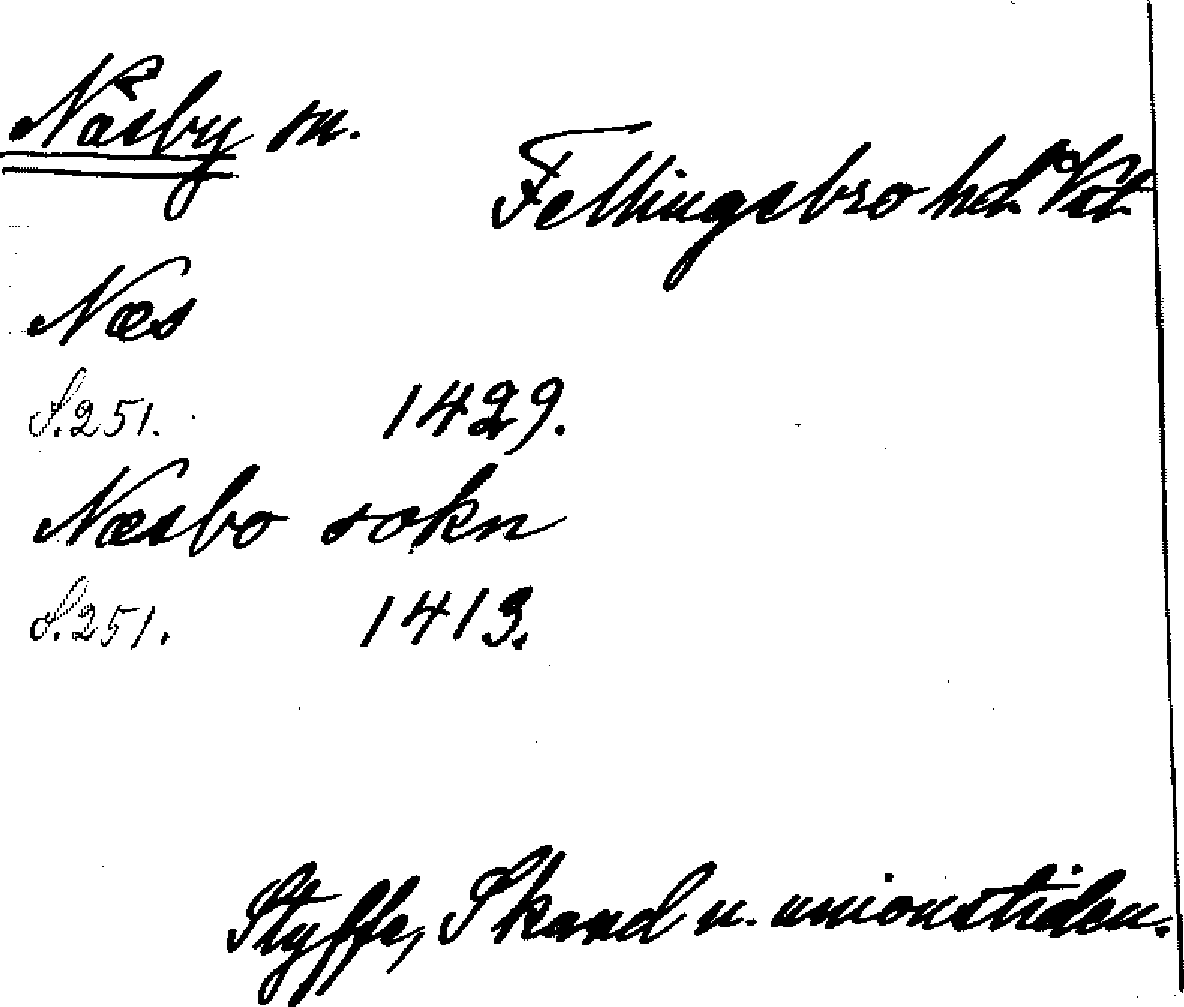 Näsby sn.
Fellingsbro hd. Vstm.
Næs
S. 251. 1429.
Næsbo sokn
S. 251. 1413.
Styffe, Skand u. unionstiden.